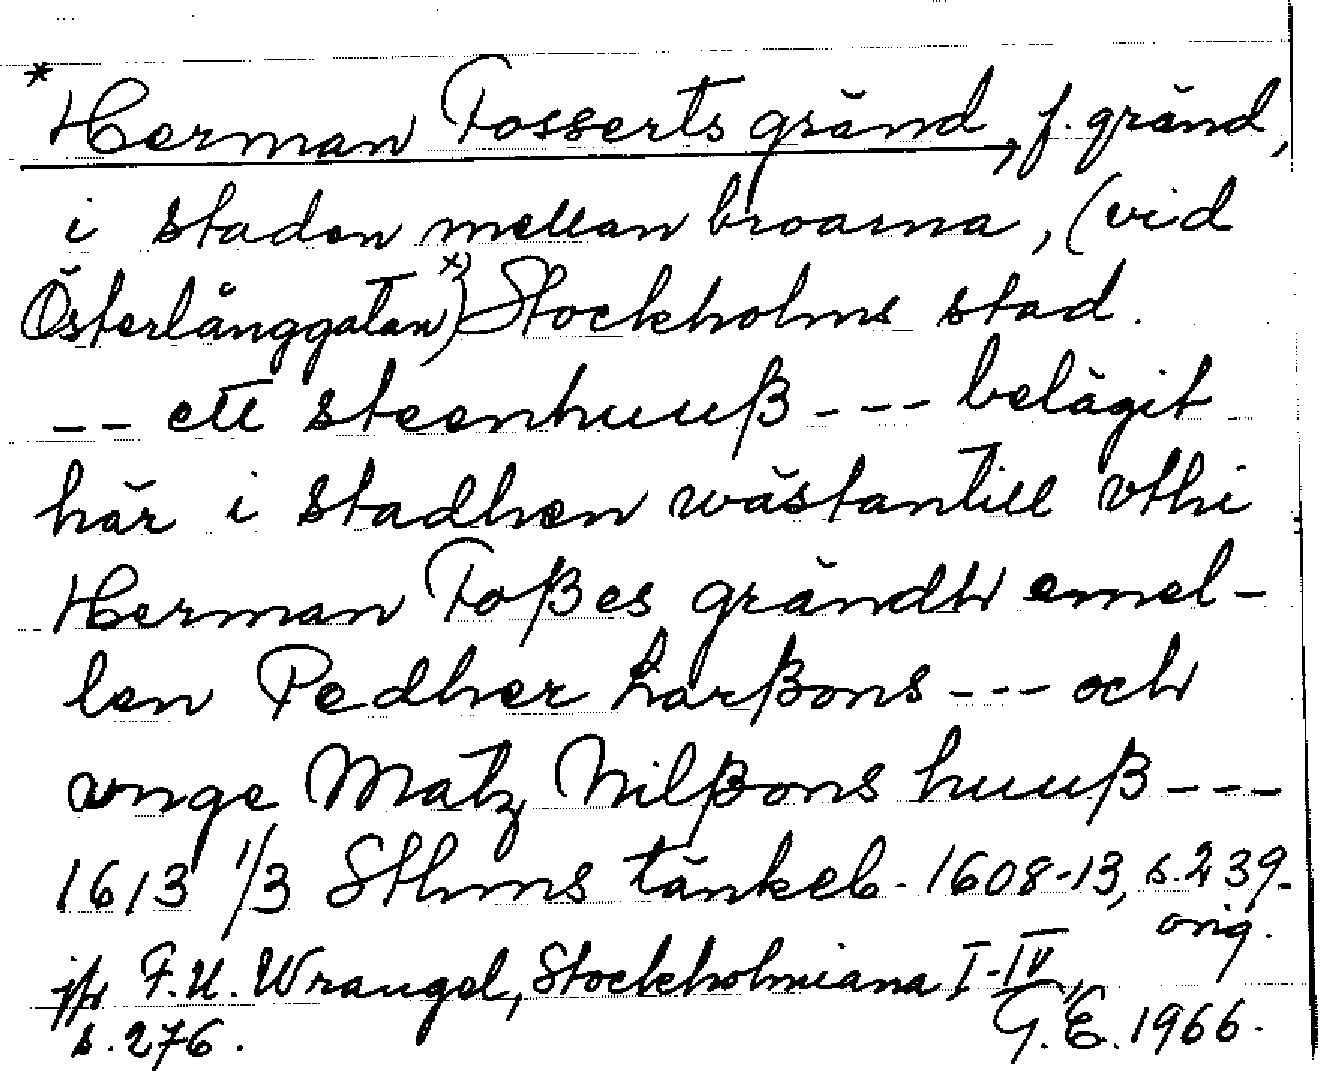 * Herman Fosserts gränd, f. gränd,
i staden mellan broarna, (vid
Österlånggatan x)) Stockholms stad.
-- ett steenhuuß --- belägit
här i stadhen wästantill vthi
Herman Foßes grändh emel-
len Pedher Larßons --- och
unge Matz Nilßons huuß ---
1613 1/3 Sthms tänkeb. 1608-13, s. 239.
orig.
jfr F.U. Wrangel, Stockholmiana I-IV,
s. 276.
G.E. 1966.